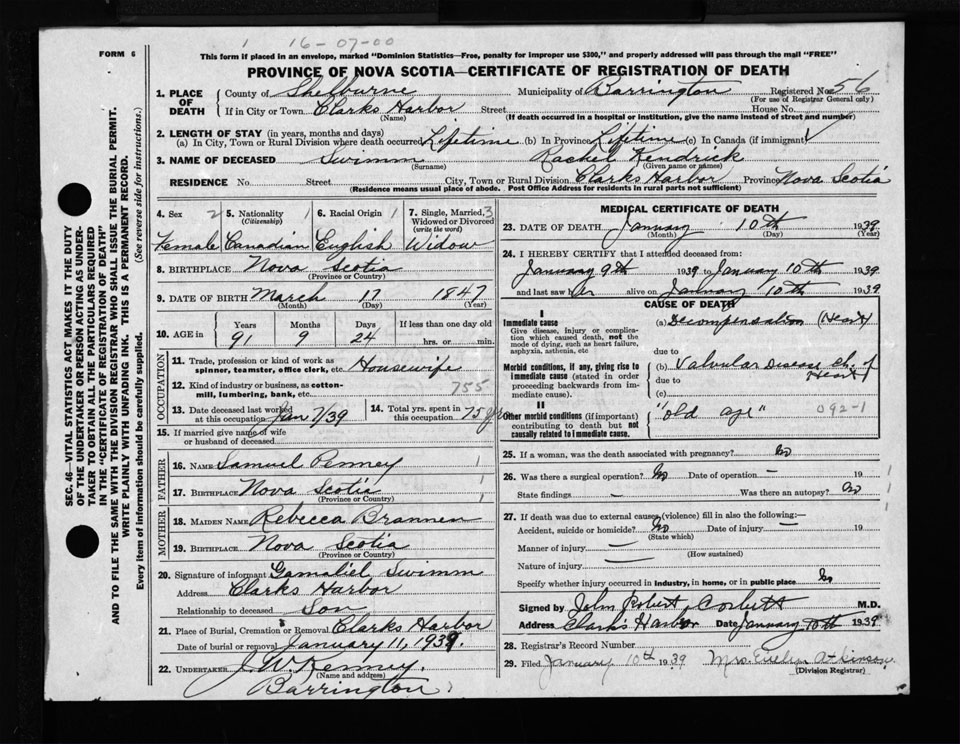 1 16-07-00
FORM 6
This form if placed in an envelope, marked "Dominion Statistics—Free, penalty for improper use $300," and properly addressed will pass through the mail "FREE"
PROVINCE OF NOVA SCOTIA—CERTIFICATE OF REGISTRATION OF DEATH
1. PLACE OF DEATH County of Shelburne Municipality of Barrington Registered No. 56
(For use of Registrar General only)
If in City or Town Clarks Harbor Street House No.
(Name) (If death occurred in a hospital or institution, give the name instead of street and number)
2. LENGTH OF STAY (in years, months and days)
(a) In City, Town or Rural Division where death occurred Lifetime (b) In Province Lifetime (c) In Canada (if immigrant)
3. NAME OF DECEASED Swimm Rachel Kendrick
(Surname) (Given name or names)
RESIDENCE No. Street City, Town or Rural Division Clarks Harbor Province Nova Scotia
(Residence means usual place of abode. Post Office Address for residents in rural parts not sufficient)
4. Sex 2 5. Nationality 1 6. Racial Origin 1 7. Single, Married, 3
(Citizenship) Widowed or Divorced
(write the word)
Female Canadian English Widow
8. BIRTHPLACE Nova Scotia
(Province or Country)
9. DATE OF BIRTH March 17 1847
(Month) (Day) (Year)
10. AGE in Years Months Days If less than one day old
91 9 24 hrs. or min.
OCCUPATION
11. Trade, profession or kind of work as
spinner, teamster, office clerk, etc. Housewife
12. Kind of industry or business, as cotton-
mill, lumbering, bank, etc. 755
13. Date deceased last worked at this occupation Jan 7/39 14. Total yrs. spent in this occupation 75 yrs
15. If married give name of wife
or husband of deceased
FATHER
16. NAME Samuel Penney 1
17. BIRTHPLACE Nova Scotia 1
(Province or Country)
MOTHER
18. MAIDEN NAME Rebecca Brannen 1
19. BIRTHPLACE Nova Scotia
(Province or Country)
20. Signature of informant Gamaliel Swimm
Address Clarks Harbor
Relationship to deceased Son
21. Place of Burial, Cremation or Removal Clarks Harbor
Date of burial or removal January 11, 1939.
22. UNDERTAKER J. W. Kenney.
(Name and address)
Barrington
MEDICAL CERTIFICATE OF DEATH
23. DATE OF DEATH January 10th 1939
(Month) (Day) (Year)
24. I HEREBY CERTIFY that I attended deceased from:
January 9th 1939 to January 10th 1939
and last saw her alive on January 10th 1939
CAUSE OF DEATH
I
Immediate cause (a) Decompensation (Heart)
Give disease, injury or complica-
tion which caused death, not the
mode of dying, such as heart failure,
asphyxia, asthenia, etc due to
Morbid conditions, if any, giving rise to (b) Valvular Disease Ch. of Heart
immediate cause (stated in order due to
proceeding backwards from im-
mediate cause). (c)
II
Other morbid conditions (if important) "old age" 092-1
contributing to death but not
causally related to immediate cause.
25. If a woman, was the death associated with pregnancy? No
26. Was there a surgical operation? No Date of operation — 19 1
State findings — Was there an autopsy? No 1
27. If death was due to external causes (violence) fill in also the following:—
Accident, suicide or homicide? No Date of injury — 19
(State which)
Manner of injury —
(How sustained)
Nature of injury —
Specify whether injury occurred in industry, in home, or in public place No
Signed by John Robert Corbett M.D.
Address Clark's Harbor Date January 10th 1939
28. Registrar's Record Number
29. Filed January 10th 1939 Mrs. Evelyn Atkinson.
(Division Registrar)
SEC. 46—VITAL STATISTICS ACT MAKES IT THE DUTY
OF THE UNDERTAKER OR PERSON ACTING AS UNDER-
TAKER TO OBTAIN ALL THE PARTICULARS REQUIRED
IN THE "CERTIFICATE OF REGISTRATION OF DEATH"
AND TO FILE THE SAME WITH THE DIVISION REGISTRAR WHO SHALL ISSUE THE BURIAL PERMIT.
WRITE PLAINLY WITH UNFADING INK. THIS IS A PERMANENT RECORD.
Every item of information should be carefully supplied. (See reverse side for instructions.)